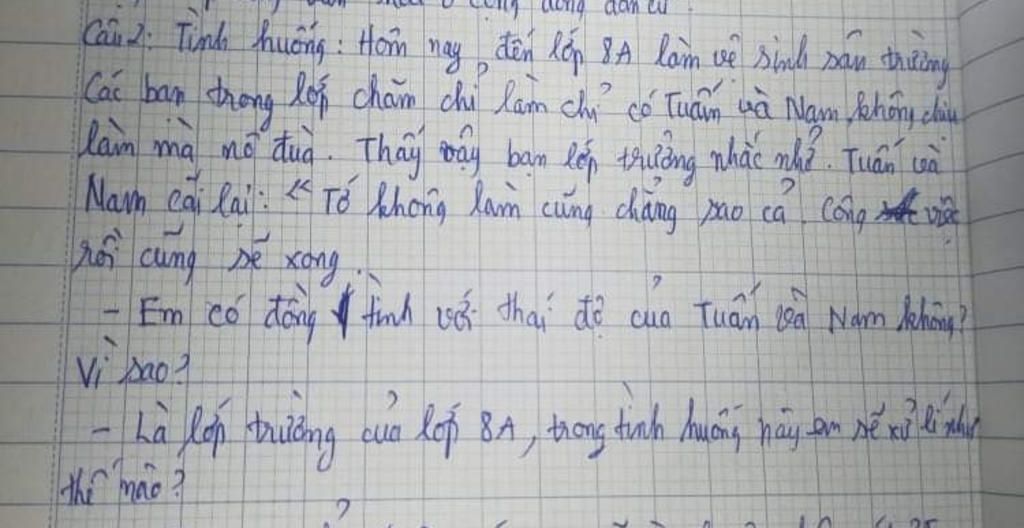 Câu 2: Tình huống: Hôm nay, đến lớp 8A làm vệ sinh sân trường
Các bạn trong lớp chăm chỉ làm chỉ có Tuấn và Nam không chịu
làm mà nô đùa. Thấy vậy bạn lớp trưởng nhắc nhở. Tuấn và
Nam cãi lại: "Tớ không làm cũng chẳng sao cả. Công việc
rồi cũng sẽ xong.
- Em có đồng tình với thái độ của Tuấn và Nam không?
Vì sao?
- Là lớp trưởng của lớp 8A, trong tình huống này em sẽ xử lí như
thế nào?